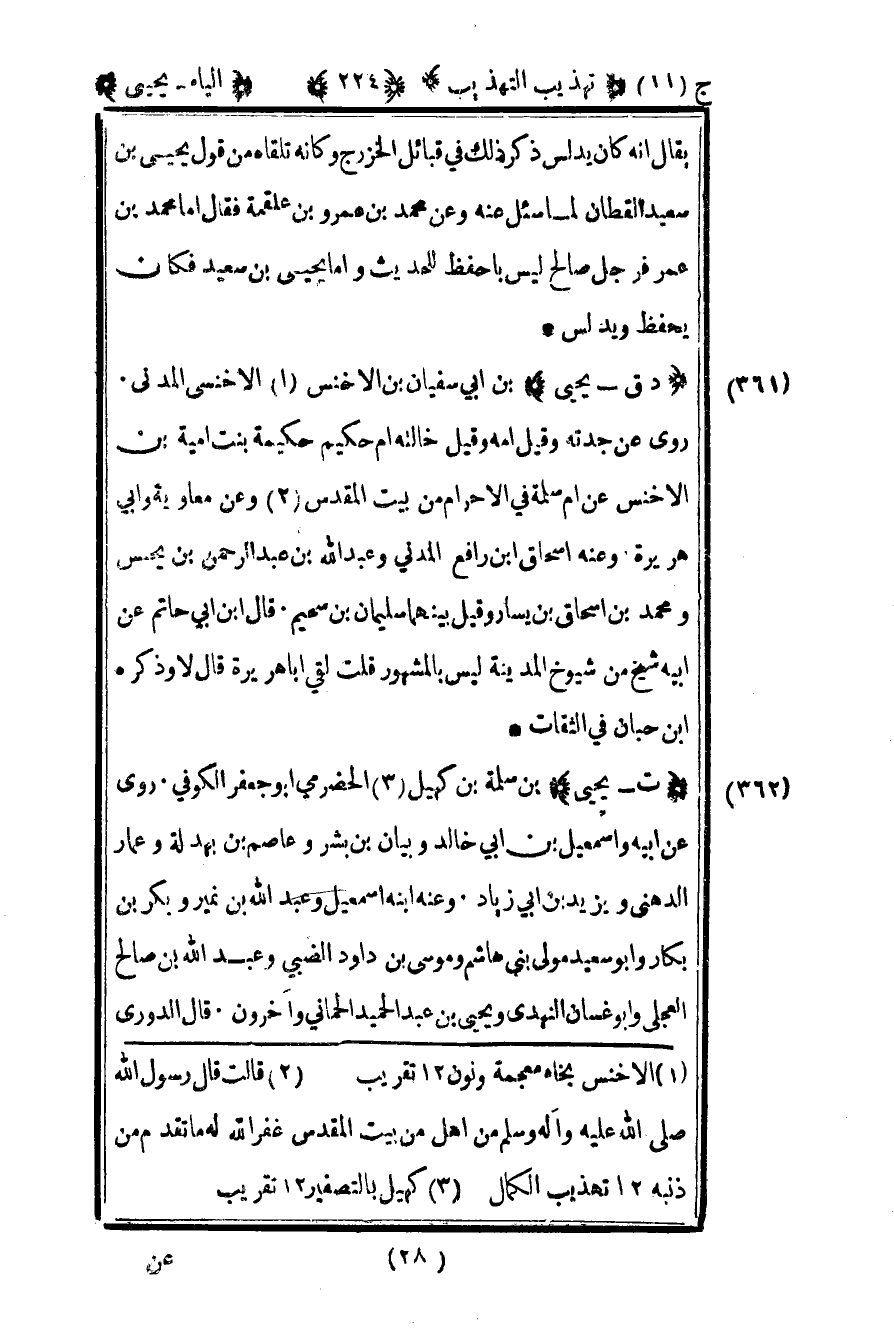 ج (١١) ﴿ تهذيب التهذيب ﴾ ﴿ ٢٢٤ ﴾ ﴿ الياء ـ يحيى ﴾
يقال انه كان يدلس ذكر ذلك في قبائل الخزرج وكانه تلقاه من قول يحيى بن
سعيد القطان لما سئل عنه وعن محمد بن عمرو بن علقمة فقال اما محمد بن
عمر فرجل صالح ليس باحفظ للحديث و اما يحيى بن سعيد فكان
يحفظ ويدلس •
(٣٦١) ﴿ د ق ـ يحيى ﴾ بن ابي سفيان بن الاخنس (١) الاخنسى المدنى ٠
روى عن جدته وقيل امه وقيل خالته ام حكيم حكيمة بنت امية بن
الاخنس عن ام سلمة في الاحرام من بيت المقدس (٢) وعن معاوية وابي
هريرة ٠ وعنه اسحاق ابن رافع المدني وعبدالله بن عبدالرحمن بن يحنس
و محمد بن اسحاق بن يسار وقيل بينهما سليمان بن سحيم ٠ قال ابن ابي حاتم عن
ابيه شيخ من شيوخ المدينة ليس بالمشهور قلت لقي اباهريرة قال لا وذكر •
ابن حبان في الثقات •
(٣٦٢) ﴿ ت ـ يحيى ﴾ بن سلمة بن كهيل (٣) الحضرمي ابو جعفر الكوفي ٠ روى
عن ابيه واسمعيل بن ابي خالد و بيان بن بشر و عاصم بن بهدلة و عمار
الدهنى و يزيد بن ابي زياد ٠ وعنه ابنه اسمعيل وعبد الله بن نمير و بكر بن
بكار وابو سعيد مولى بني هاشم وموسى بن داود الضبي وعبد الله بن صالح
العجلي وابو غسان النهدى ويحيى بن عبد الحميد الحماني وآخرون ٠ قال الدورى
(١) الاخنس بخاء معجمة ونون ١٢ تقريب (٢) قالت قال رسول الله
صلى الله عليه وآله وسلم من اهل من بيت المقدس غفر الله له ما تقدم من
ذنبه ١٢ تهذيب الكمال (٣) كهيل بالتصغير ١٢ تقريب
(٢٨) عن